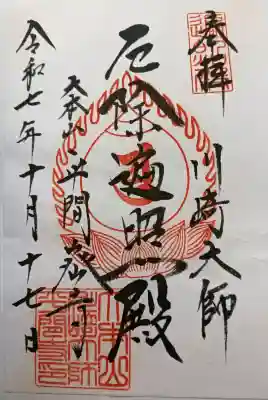 奉拝
川崎大師
厄除遍照殿
大本山 平間寺
令和七年十月十七日